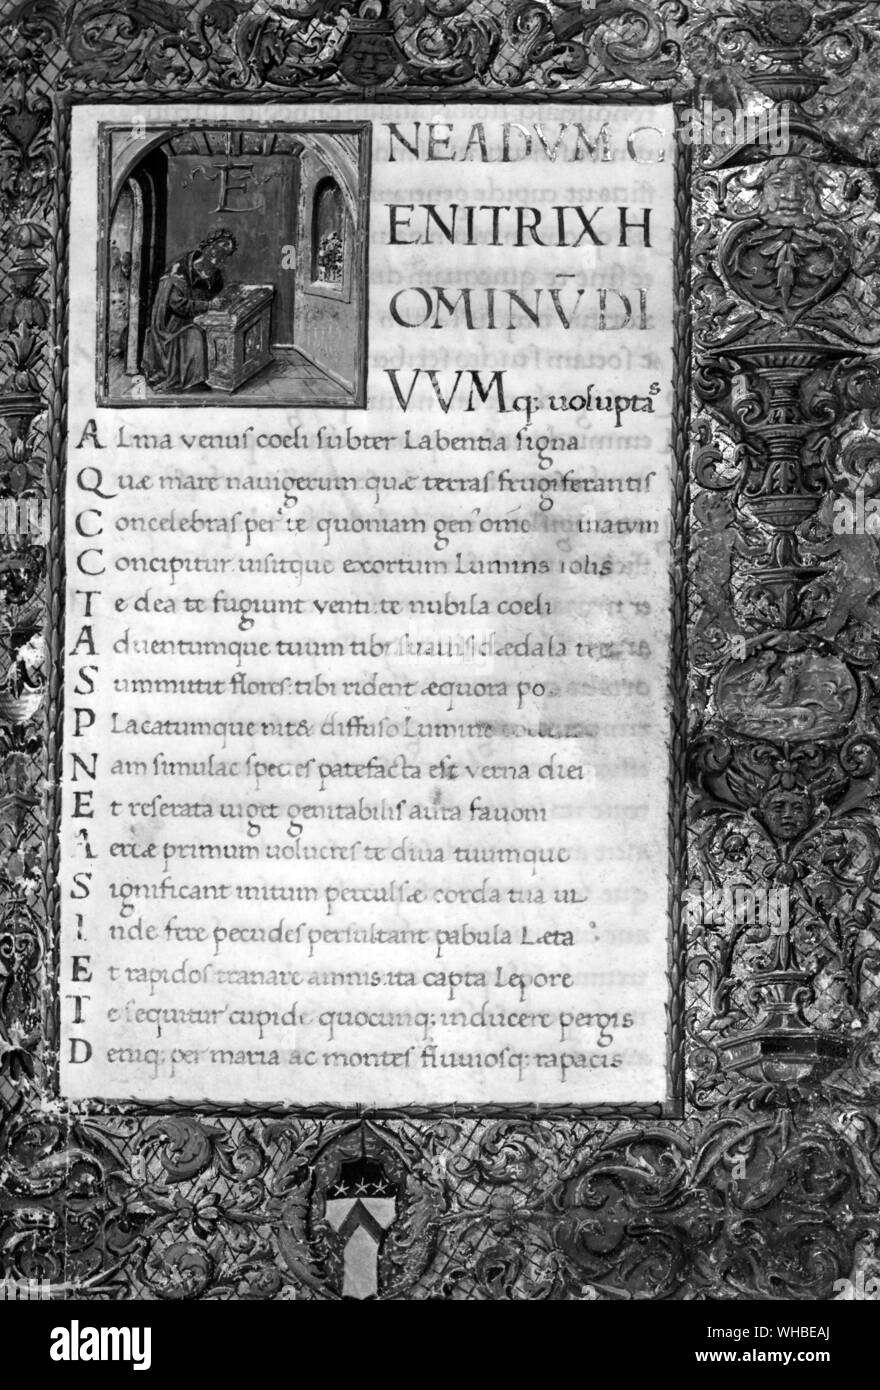 E
NEADVM G
ENITRIX H
OMINV̄ DI
VVM q: uolupta s
ALma venus coeli subter Labentia signa
Quæ mare nauigerum quæ terras frugiferantis
Concelebras per te quoniam gen' om̄e natum
Concipitur uisitque exortum Lumina solis
Te dea te fugiunt venti: te nubila coeli
Aduentumque tuum tibi suauis dædala
Summittit flores: tibi rident æquora po
PLacatumque nit& diffuso Lumine
Nam simulac species patefacta est verna diei
Et reserata uiget genitabilis aura favoni
Aeriæ primum uolucres te diua tuumque
Significant initum perculsæ corda tua ui
Inde fere pecudes persultant pabula Læta
Et rapidos tranare amnis: ita capta Lepore
Te sequitur cupide quocunq: inducere pergis
Deniq: per maria ac montes fluuiosq: rapacis
alamy
Image ID: WHBEAJ
www.alamy.com